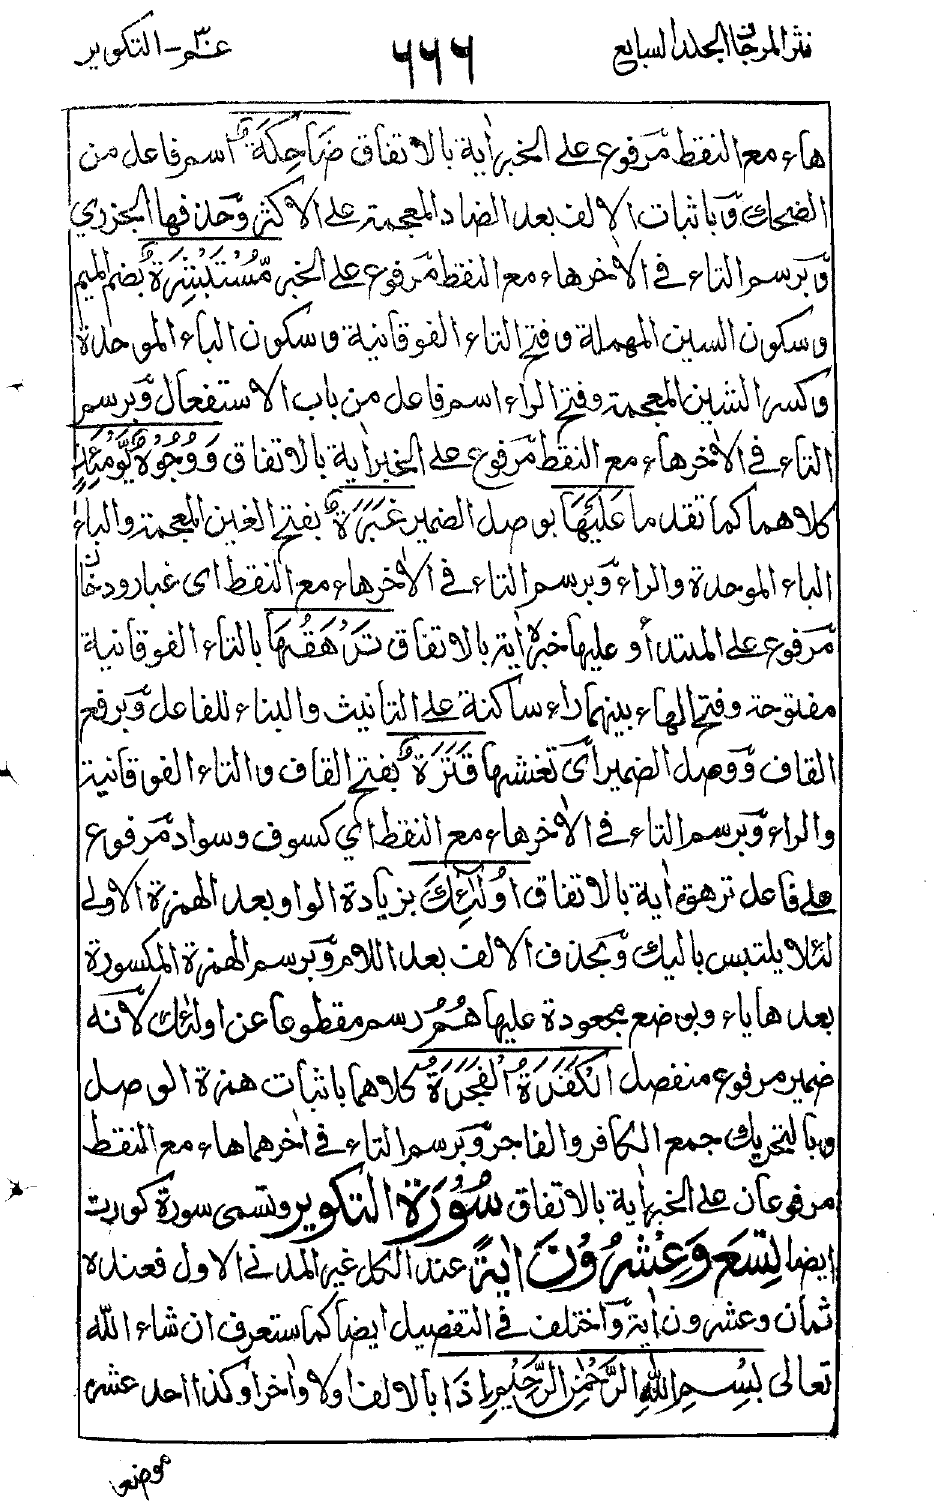 نثر المرجان الجلد السابع ٦٦٦ عمّ - التكوير
هاء مع النقط مّرفوع على الخبر أية بالاتفاق ضَاحِكَةٌ اسم فاعل من
الضحك وّباثبات الالف بعد الضاد المعجمة على الاكثر وحذفها الجزري
وّبرسم التاء فى الاٰخر هاء مع النقط مّرفوع على الخبر مُّسْتَبْشِرَةٌ بضم الميم
وسكون السين المهملة وفتح التاء الفوقانية وسكون الباء الموحدة
وكسر الشين المعجمة وفتح الراء اسم فاعل من باب الاستفعال وّبرسم
التاء فى الاٰخر هاء مع النقط مّرفوع على الخبر أية بالاتفاق وَوُجُوْهٌ يَّوْمَئِذٍ
كلاهما كما تقدما عَلَيْهَا بوصل الضمير غَبَرَةٌ بفتح الغين المعجمة والباء
الباء الموحدة والراء وّبرسم التاء فى الاٰخر هاء مع النقط اى غبار ودخان
مّرفوع على المبتدأ و عليها خبره أية بالاتفاق تَرْهَقُهَا بالتاء الفوقانية
مفتوحة وفتح الهاء بينهما راء ساكنة على التانيث والبناء للفاعل وّبرفع
القاف وّوصل الضمير اىّ تغشها قَتَرَةٌ بفتح القاف والتاء الفوقانية
والراء وّبرسم التاء فى الاٰخر هاء مع النقط اي كسوف وسواد مّرفوع
على فاعل ترهق أية بالاتفاق اُولٰٓئِكَ بزيادة الواو بعد الهمزة الاولى
لئلا يلتبس باليك وّبحذف الالف بعد اللام وّبرسم الهمزة المكسورة
بعدها ياء وبوضع مجعودة عليها هُمُ رسم مقطوعا عن اولئك لانه
ضمير مرفوع منفصل الْكَفَرَةُ الْفَجَرَةُ كلاهما باثبات همزة الوصل
وبالتحريك جمع الكافر والفاجر وّبرسم التاء فى اٰخرهما هاء مع النقط
مرفوعان على الخبر أية بالاتفاق سُوْرَةُ التكوير وتسمى سورة كورت
ايضا تِسَع وَعِشْرُوْنَ اٰيَةً عند الكل غير المدنى الاول فعنده
ثمان وعشرون أية وّاختلف فى التفصيل ايضا كما ستعرف ان شاء الله
تعالى بِسْمِ اللهِ الرَّحْمٰنِ الرَّحِيْمِ اِذَا بالالف اولا واٰخرا وكذا احد عشر
موضعا